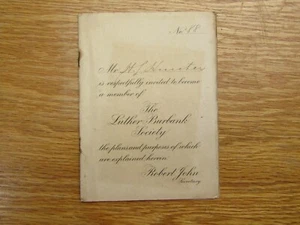 No.
Mr. H. S.
is respectfully invited to become
a member of
The
Luther Burbank
Society
the plans and purposes of which
are explained herein
Robert John
Secretary